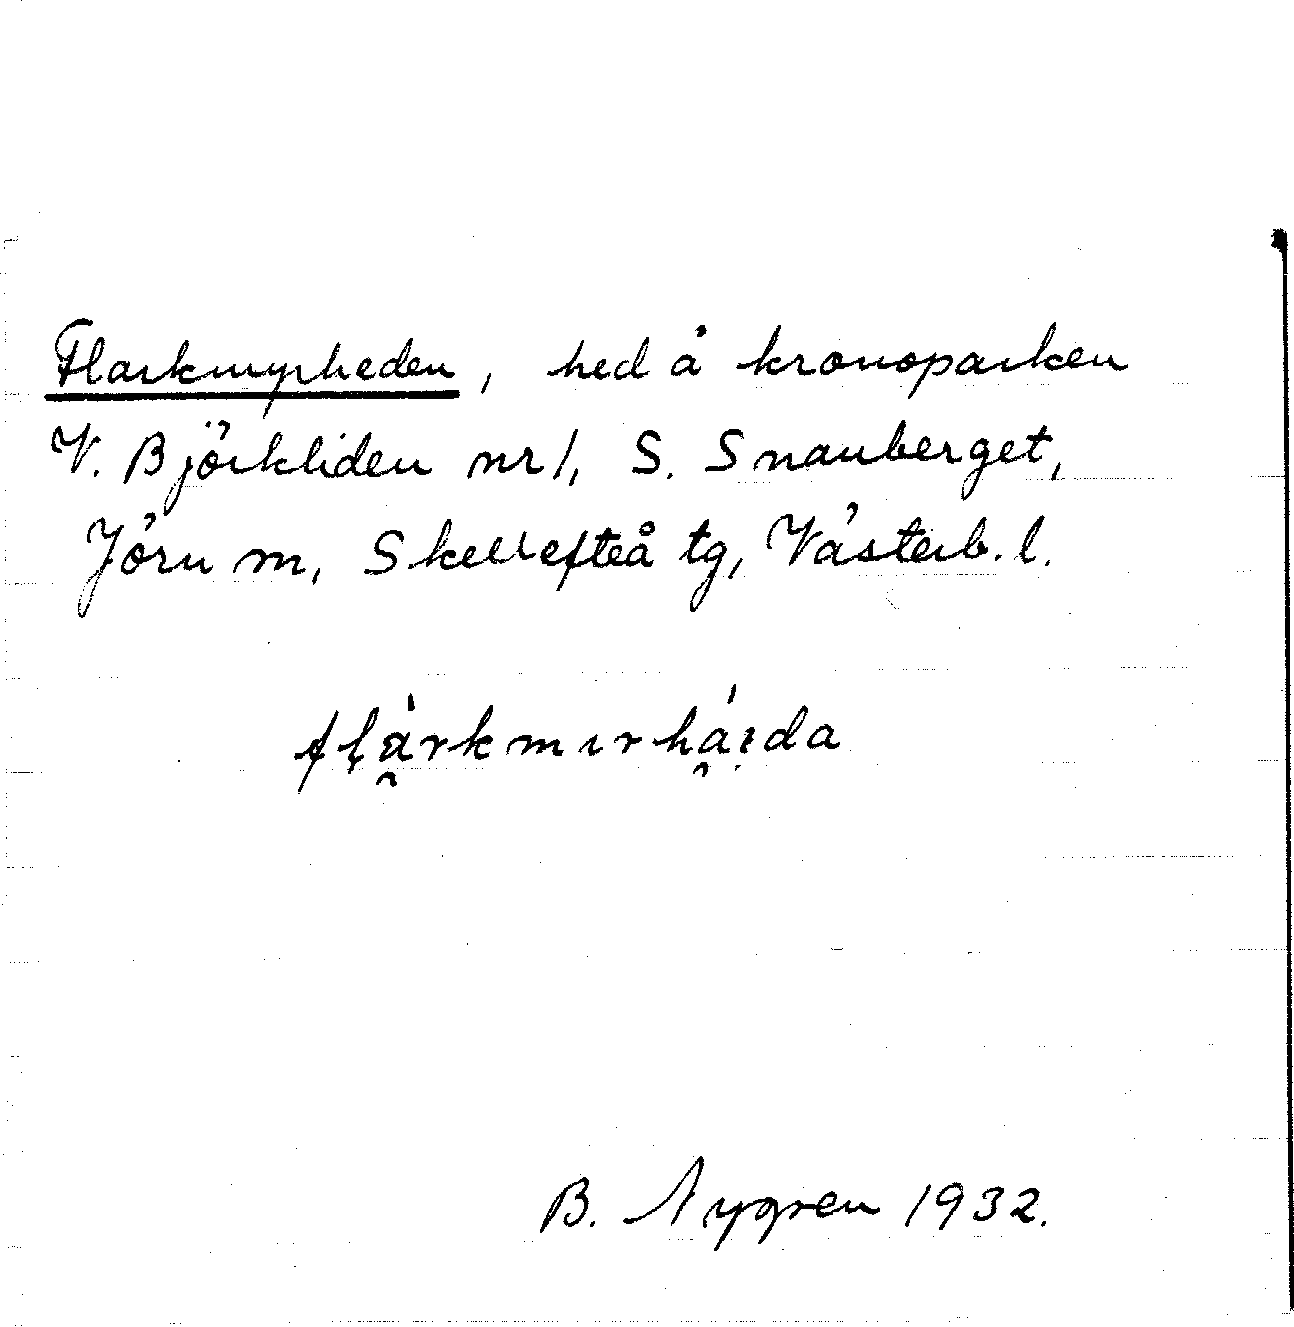 Flarkmyrheden, hed å kronoparken
V. Björkliden nr 1, S. Snauberget,
Jörn m, Skellefteå tg, Västerb. l.
flàrkmırháıda
B. Nygren 1932.